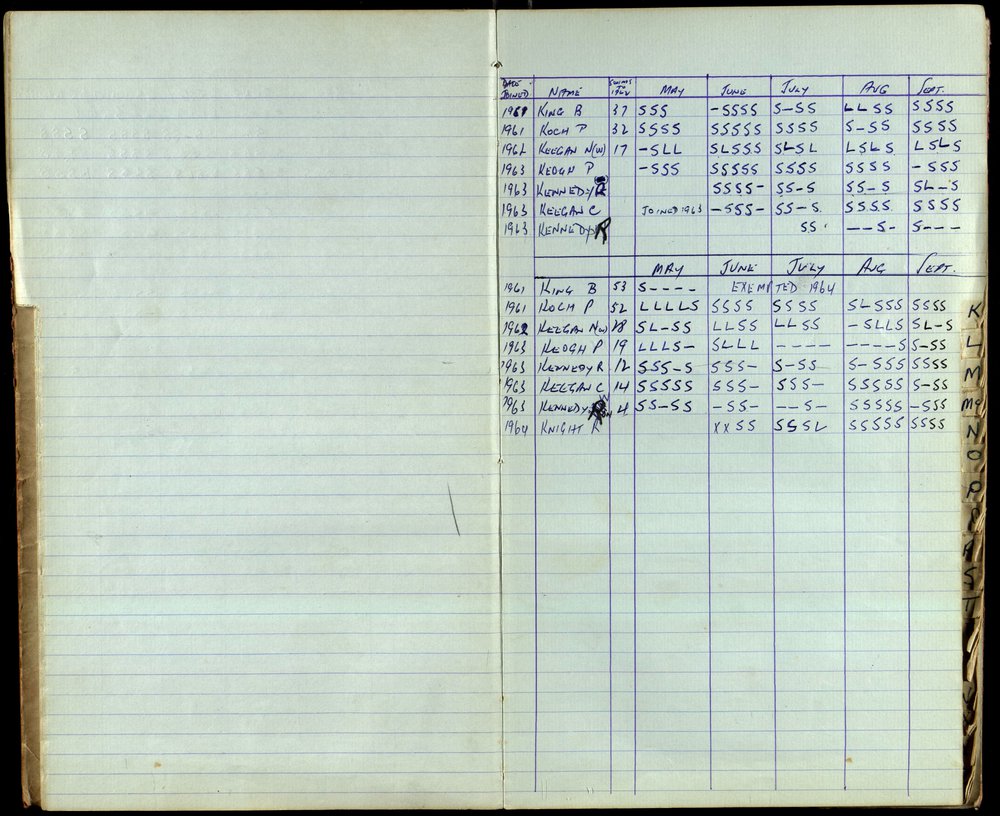 DATE JOINED NAME SWIMS TO 1962 MAY JUNE JULY AUG SEPT.
1961 KING B 37 SSS -SSSS S-SS LLSS SSSS
1961 KOCH P 32 SSSS SSSSS SSSS S-SS SSSS
1962 KEEGAN N(W) 17 -SLL SLSSS SLSL LSLS LSLS
1963 KEOGH P -SSS SSSSS SSSS SSSS -SSS
1963 KENNEDY R SSSS- SS-S SS-S SL-S
1963 KEEGAN C JOINED 1963 -SSS- SS-S SSSS SSSS
1963 KENNEDY R SS --S- S---
MAY JUNE JULY AUG SEPT.
1961 KING B 53 S---- EXEMPTED 1964
1961 KOCH P 52 LLLLS SSSS SSSS SLSSS SSSS
1962 KEEGAN N(W) 28 SL-SS LLSS LLSS -SLLS SL-S
1963 KEOGH P 19 LLLS- SLLL ---- ----S S-SS
1963 KENNEDY R 12 SSS-S SSS- S-SS S-SSS SSSS
1963 KEEGAN C 14 SSSSS SSS- SSS- SSSSS S-SS
1963 KENNEDY R 4 SS-SS -SS- --S- SSSSS -SSS
1964 KNIGHT R XXSS SSSL SSSSS SSSS
K
L
M
Mc
N
O
P
R
S
T